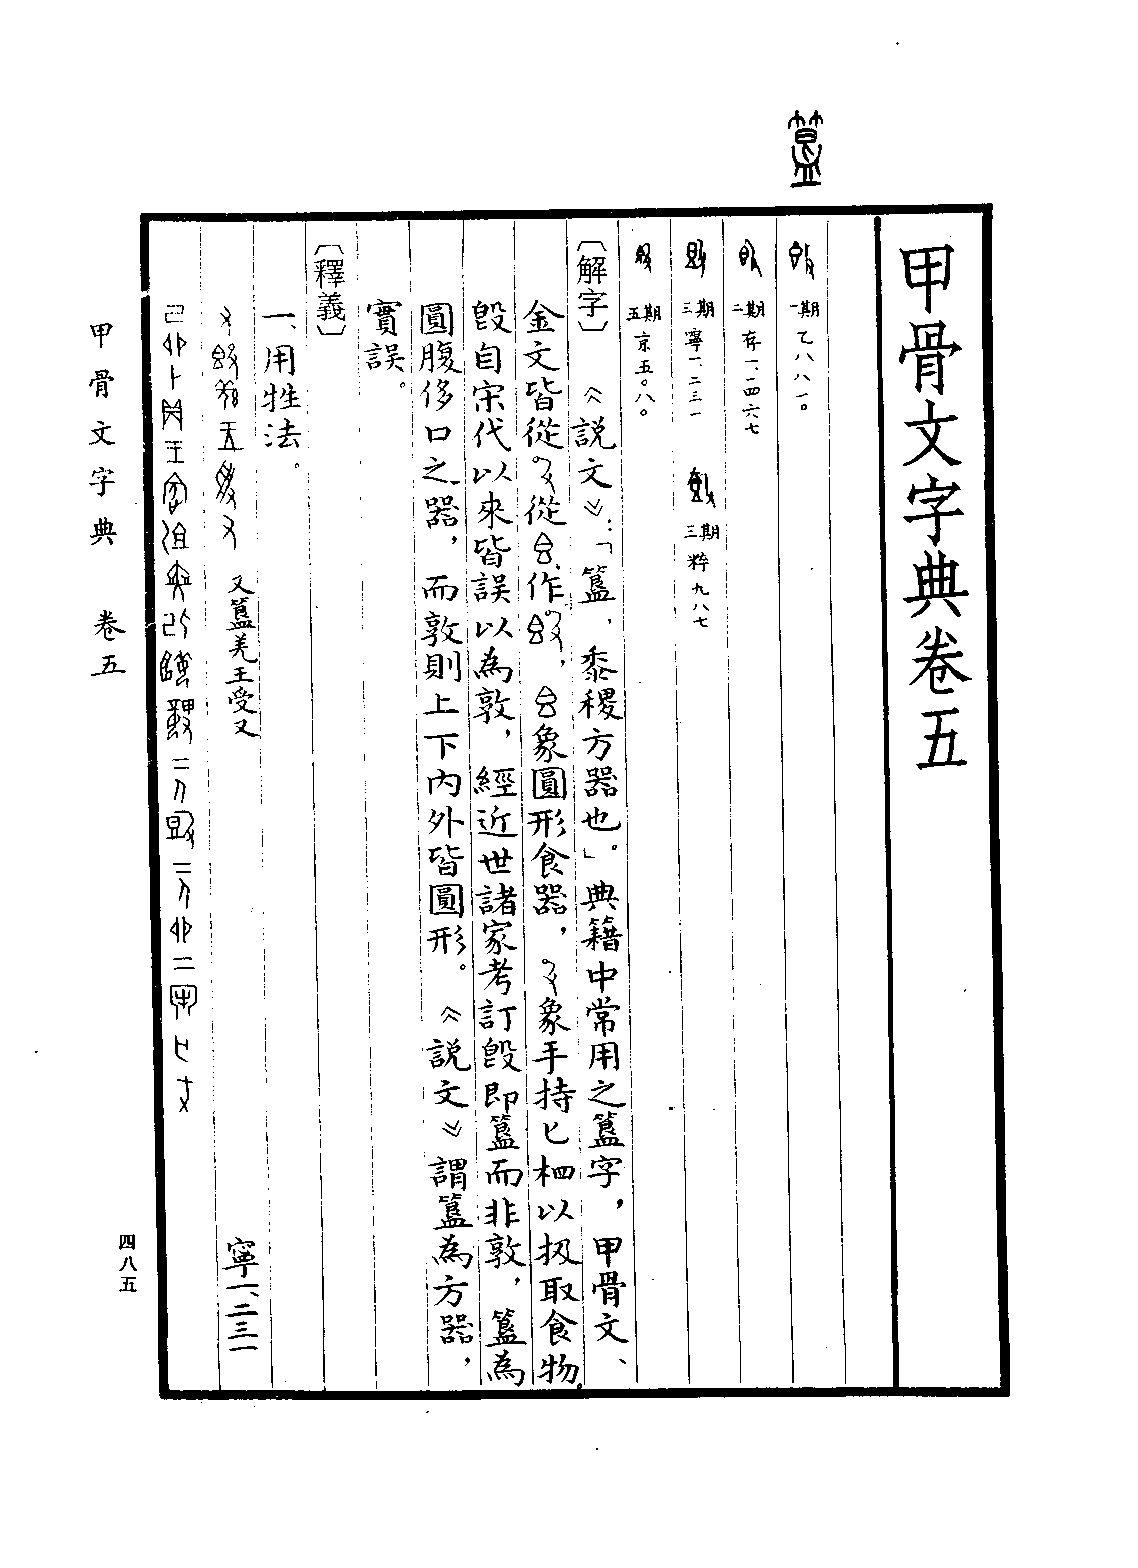 簋
甲骨文字典卷五
一期 乙八八一〇
二期 存一、一四六七
三期 寧一、二三一 三期 粹九八七
五期 京五〇八〇
〔解字〕 《說文》：「簋，黍稷方器也。」典籍中常用之簋字，甲骨文、
金文皆從 從 作 ， 象圓形食器， 象手持匕柶以扱取食物。
𣪘自宋代以來皆誤以為敦，經近世諸家考訂𣪘即簋而非敦，簋為
圓腹侈口之器，而敦則上下內外皆圓形。《說文》謂簋為方器，
實誤。
〔釋義〕
一、用牲法。
又簋羌王受又 寧一、二三一
甲骨文字典 卷五
四八五